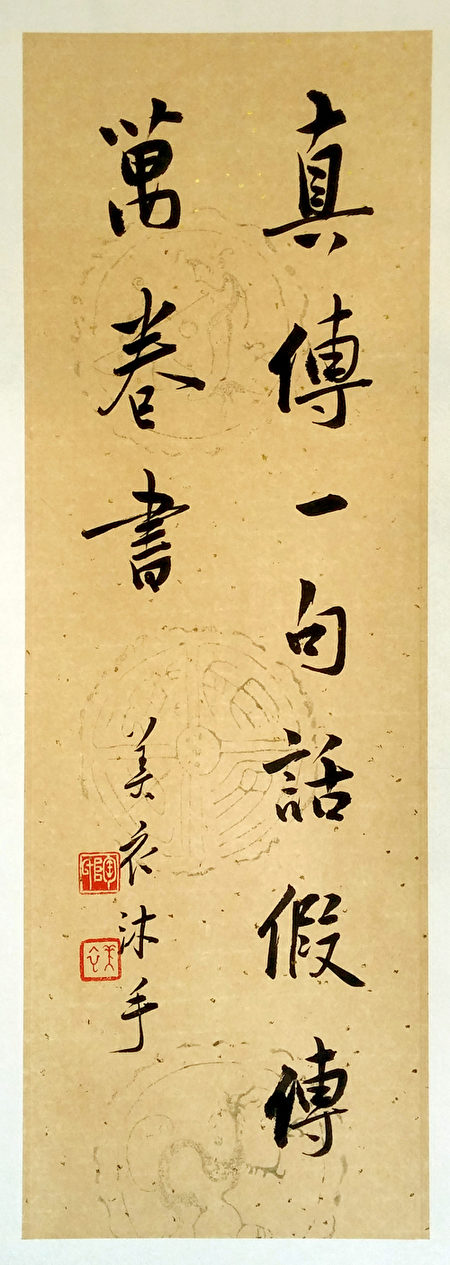 真傳一句話假傳
萬卷書
美衣沐手